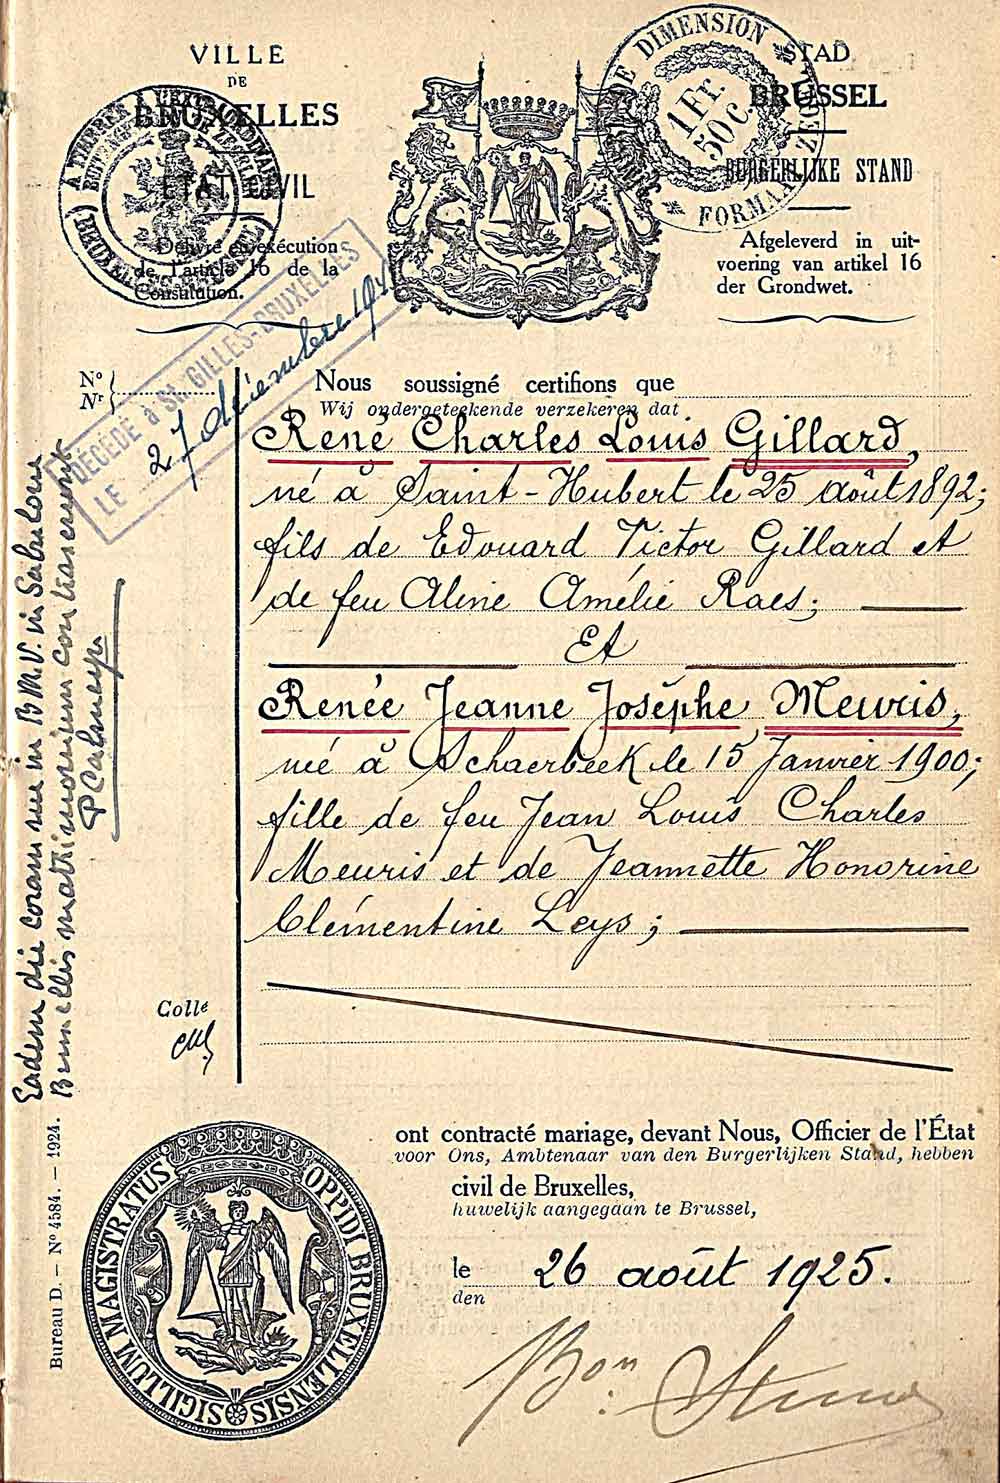 VILLE
DE
BRUXELLES
ÉTAT CIVIL
Délivré en exécution
de l'article 16 de la
Constitution.
STAD
BRUSSEL
BURGERLIJKE STAND
Afgeleverd in uit-
voering van artikel 16
der Grondwet.
DE DIMENSION
1 Fr.
50 c.
FORMAATZEGEL
DÉCÉDÉ à St. GILLES-BRUXELLES
LE 27 décembre
N°
Nr
Nous soussigné certifions que
Wij ondergeteekende verzekeren dat
René Charles Louis Gillard,
né à Saint-Hubert le 25 août 1892;
fils de Edouard Victor Gillard et
de feu Aline Amélie Raes;
Et
Renée Jeanne Josèphe Meuris,
née à Schaerbeek le 15 Janvier 1900;
fille de feu Jean Louis Charles
Meuris et de Jeannette Honorine
Clémentine Leys;
Eadem die coram me in B.M.V. in Sabulone
Bruxellis matrimonium contraxerunt
Collé
ont contracté mariage, devant Nous, Officier de l'État
voor Ons, Ambtenaar van den Burgerlijken Stand, hebben
civil de Bruxelles,
huwelijk aangegaan te Brussel,
le 26 août 1925.
den
Bon
SIGILLUM MAGISTRATUS OPPIDI BRUXELLENSIS
Bureau D. — N° 4584. — 1924.